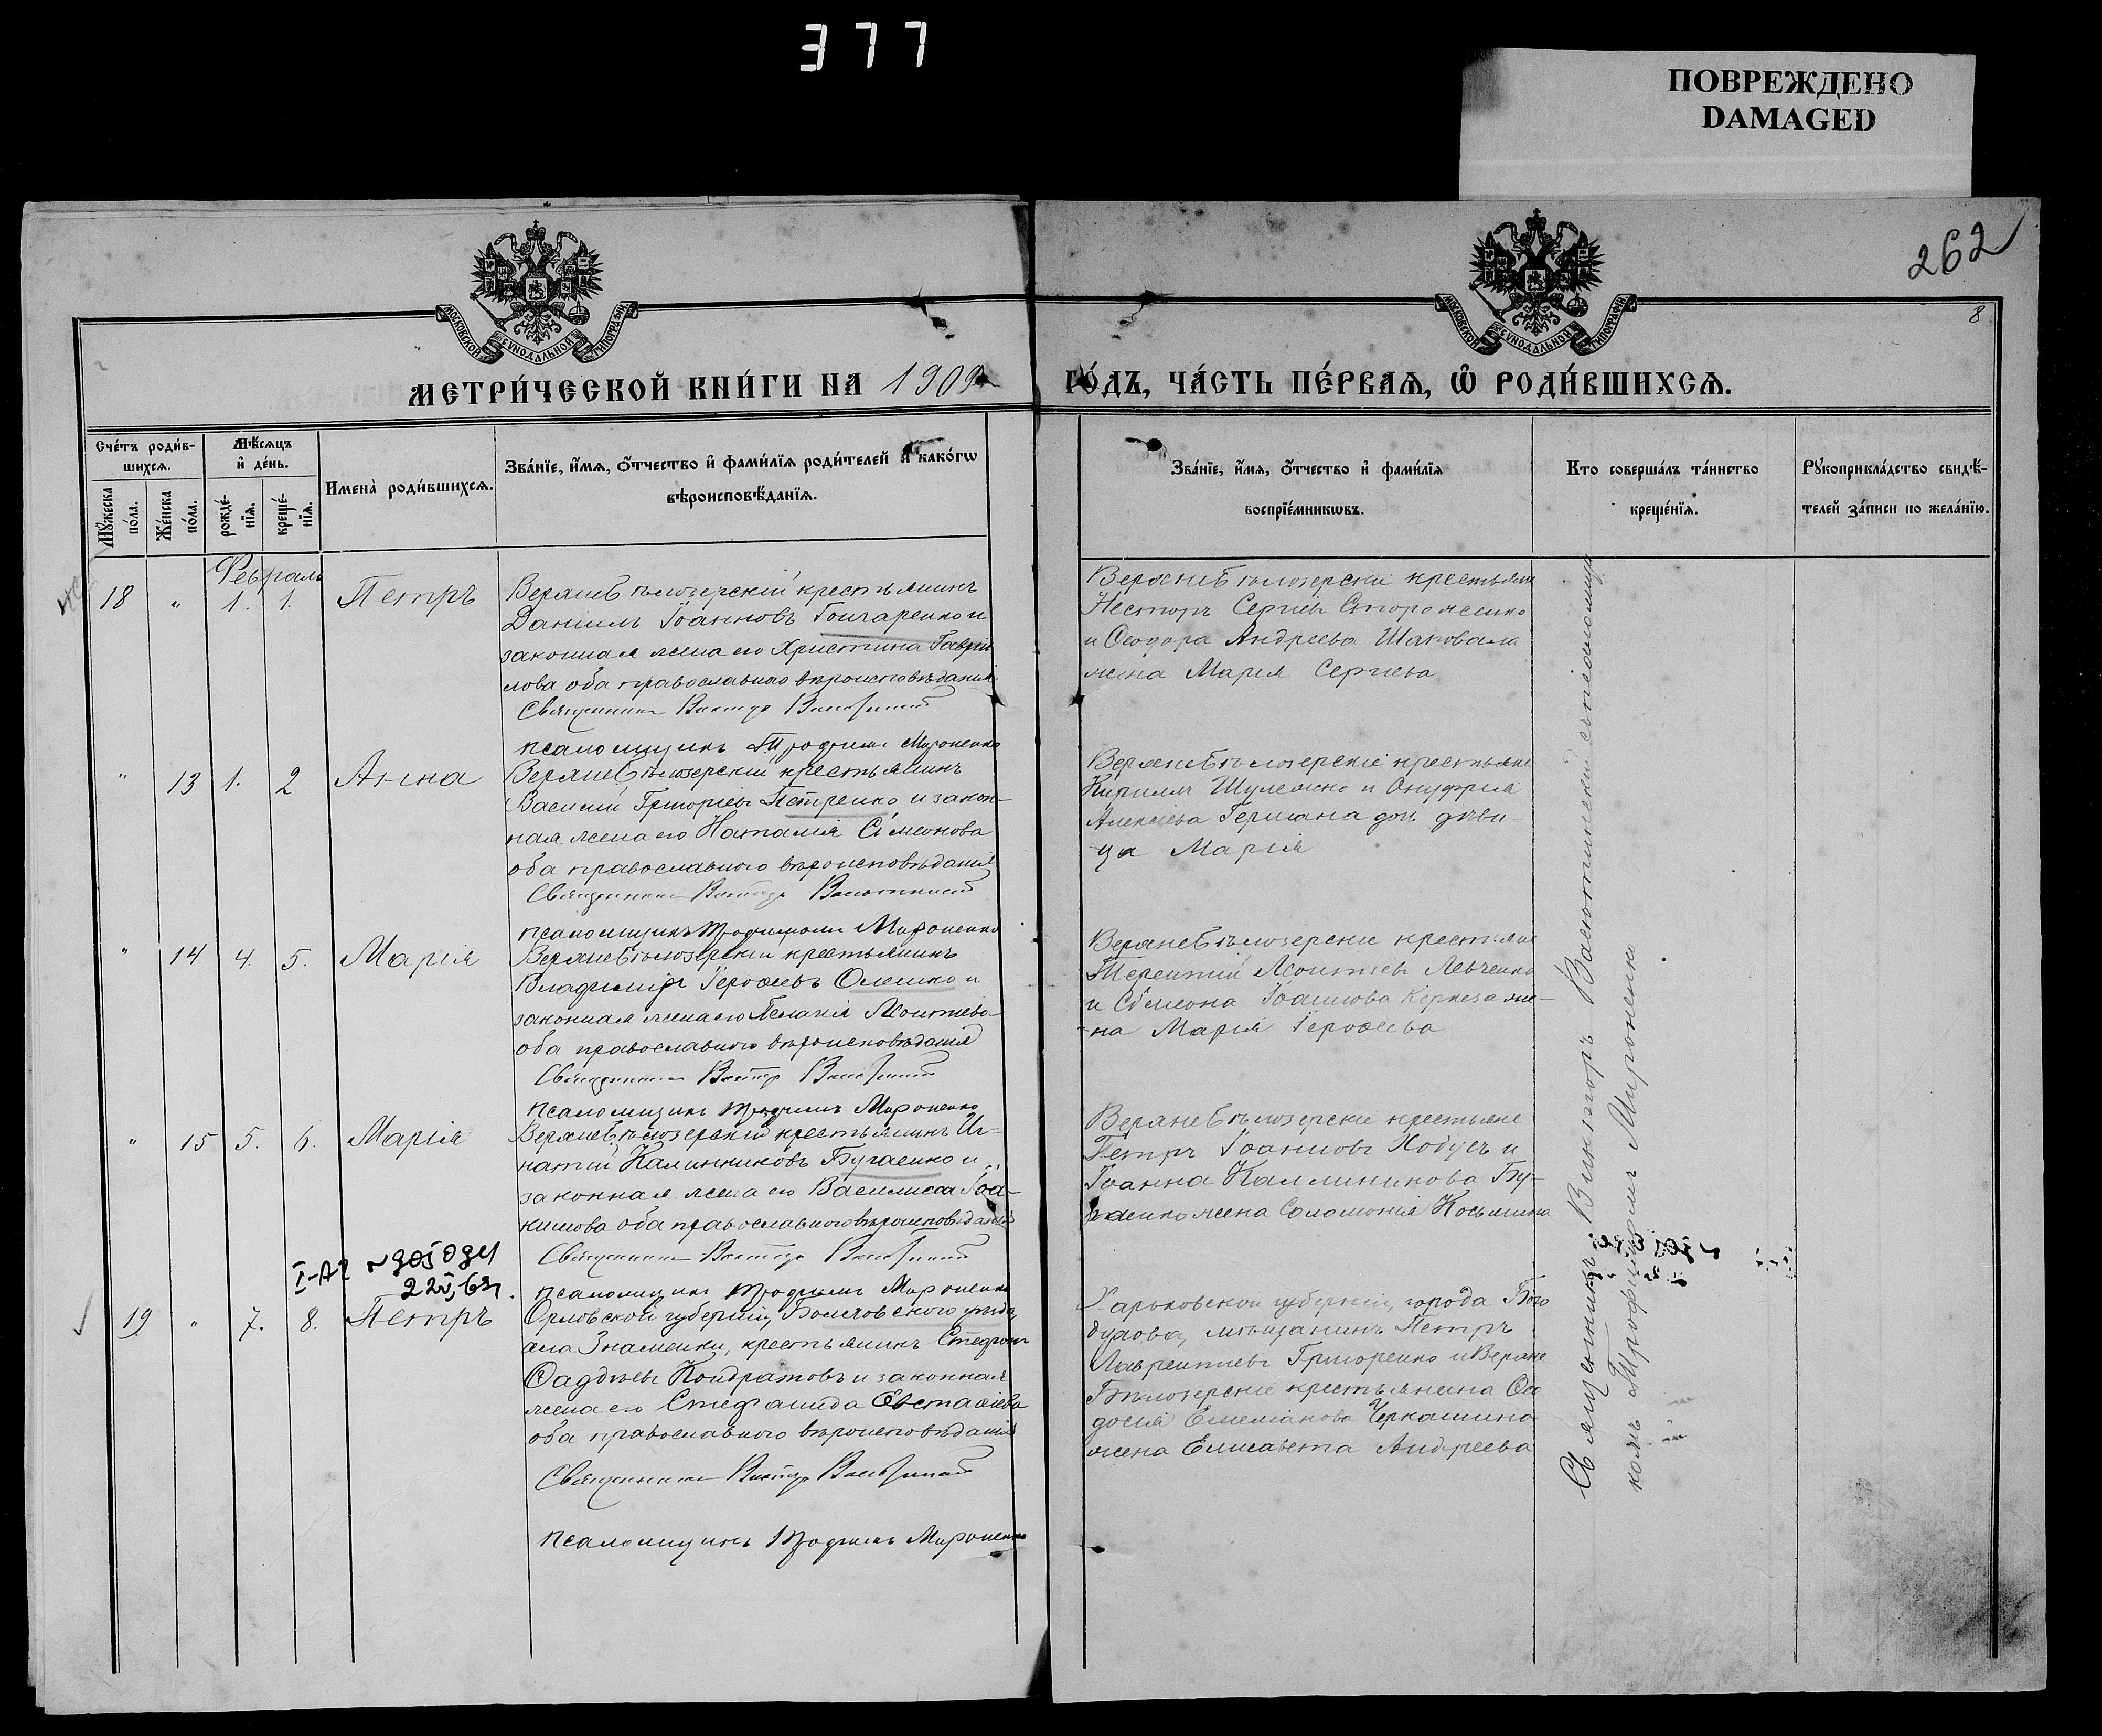 377
ПОВРЕЖДЕНО
DAMAGED
262
8
МОСКОВСКОЙ СѴНОДАЛЬНОЙ ТИПОГРАФІИ
МОСКОВСКОЙ СѴНОДАЛЬНОЙ ТИПОГРАФІИ
МЕТРИ́ЧЕСКОЙ КНИ́ГИ НА 1909
ГО́ДЪ, ЧА́СТЬ ПЕ́РВАЯ, Ѿ РОДИ́ВШИХСЯ.
Сче́тъ роди́в-
шихся.
Мꙋ́жеска по́ла.
Же́нска по́ла.
Мѣ́сяцъ и҆ де́нь.
рожде́-нїя.
креще́-нїя.
Имена̀ роди́вшихся.
Зва́нїе, и҆́мя, ѻ҆́тчество и҆ фами́лїя роди́телей и҆ како́гѡ
вѣроисповѣ́данїя.
Зва́нїе, и҆́мя, ѻ҆́тчество и҆ фами́лїя
воспрїе́мникѡвъ.
Кто соверша́лъ та́инство
креще́нїя.
Рꙋкоприкла́дство свидѣ́-
телей за́писи по жела́нїю.
Февраль
18 " 1. 1. Петръ
Верхнебѣлозерскій крестьянинъ
Даніилъ Іоанновъ Гончаренко и
законная жена его Христина Гаврі
лова оба православнаго вѣроисповѣданія
Священникъ Викторъ
псаломщикъ Трофимъ Мироненко
Верхнебѣлозерскіе крестьяне
Несторъ Сергіевъ Стороженко
и Ѳеодора Андреева Шаповала
жена Марія Сергіева
" 13 1. 2 Анна
Верхнебѣлозерскій крестьянинъ
Василій Григорьевъ Петренко и закон-
ная жена его Наталія Сімеонова
оба православнаго вѣроисповѣданія
Священникъ Викторъ
псаломщикъ Трофимъ Мироненко
Верхнебѣлозерскіе крестьяне
Кириллъ Шулежко и Онуфрія
Алексіева Германа дочь дѣви-
ца Марія
" 14 4. 5. Марія
Верхнебѣлозерскій крестьянинъ
Владиміръ Іероѳеевъ Олешко и
законная жена его Пелагія Леонтіева
оба православнаго вѣроисповѣданія
Священникъ Викторъ
псаломщикъ Трофимъ Мироненко
Верхнебѣлозерскіе крестьяне
Терентій Леонтіевъ Левченко
и Сімеона Іоаннова же-
на Марія Іероѳеева
" 15 5. 6. Марія
Верхнебѣлозерскій крестьянинъ Иг-
натій Калинниковъ Бугаенко и
законная жена его Василисса Іоа-
кимова оба православнаго вѣроисповѣданія
Священникъ Викторъ
псаломщикъ Трофимъ Мироненко
Верхнебѣлозерскіе крестьяне
Петръ Іоанновъ Хобусъ и
Іоанна Каллиникова Бу-
гаенко жена Соломонія Косьмина
19 " 7. 8. Петръ
Орловской губерніи, Болховского уѣзда,
села Знаменки, крестьянинъ Стефанъ
Ѳаддѣевъ Кондратовъ и законная
жена его Стефанида Евстаѳіева
оба православнаго вѣроисповѣданія
Священникъ Викторъ
псаломщикъ Трофимъ Мироненко
Харьковской губерніи, города Бого
духова, мѣщанинъ Петръ
Лаврентіевъ Григоренко и Верхне
Бѣлозерскіе крестьянина Ѳео
досія Емеліанова Черкашина
жена Елисавета Андреева
Священникъ Викторъ съ псаломщи
комъ Трофимомъ Мироненко